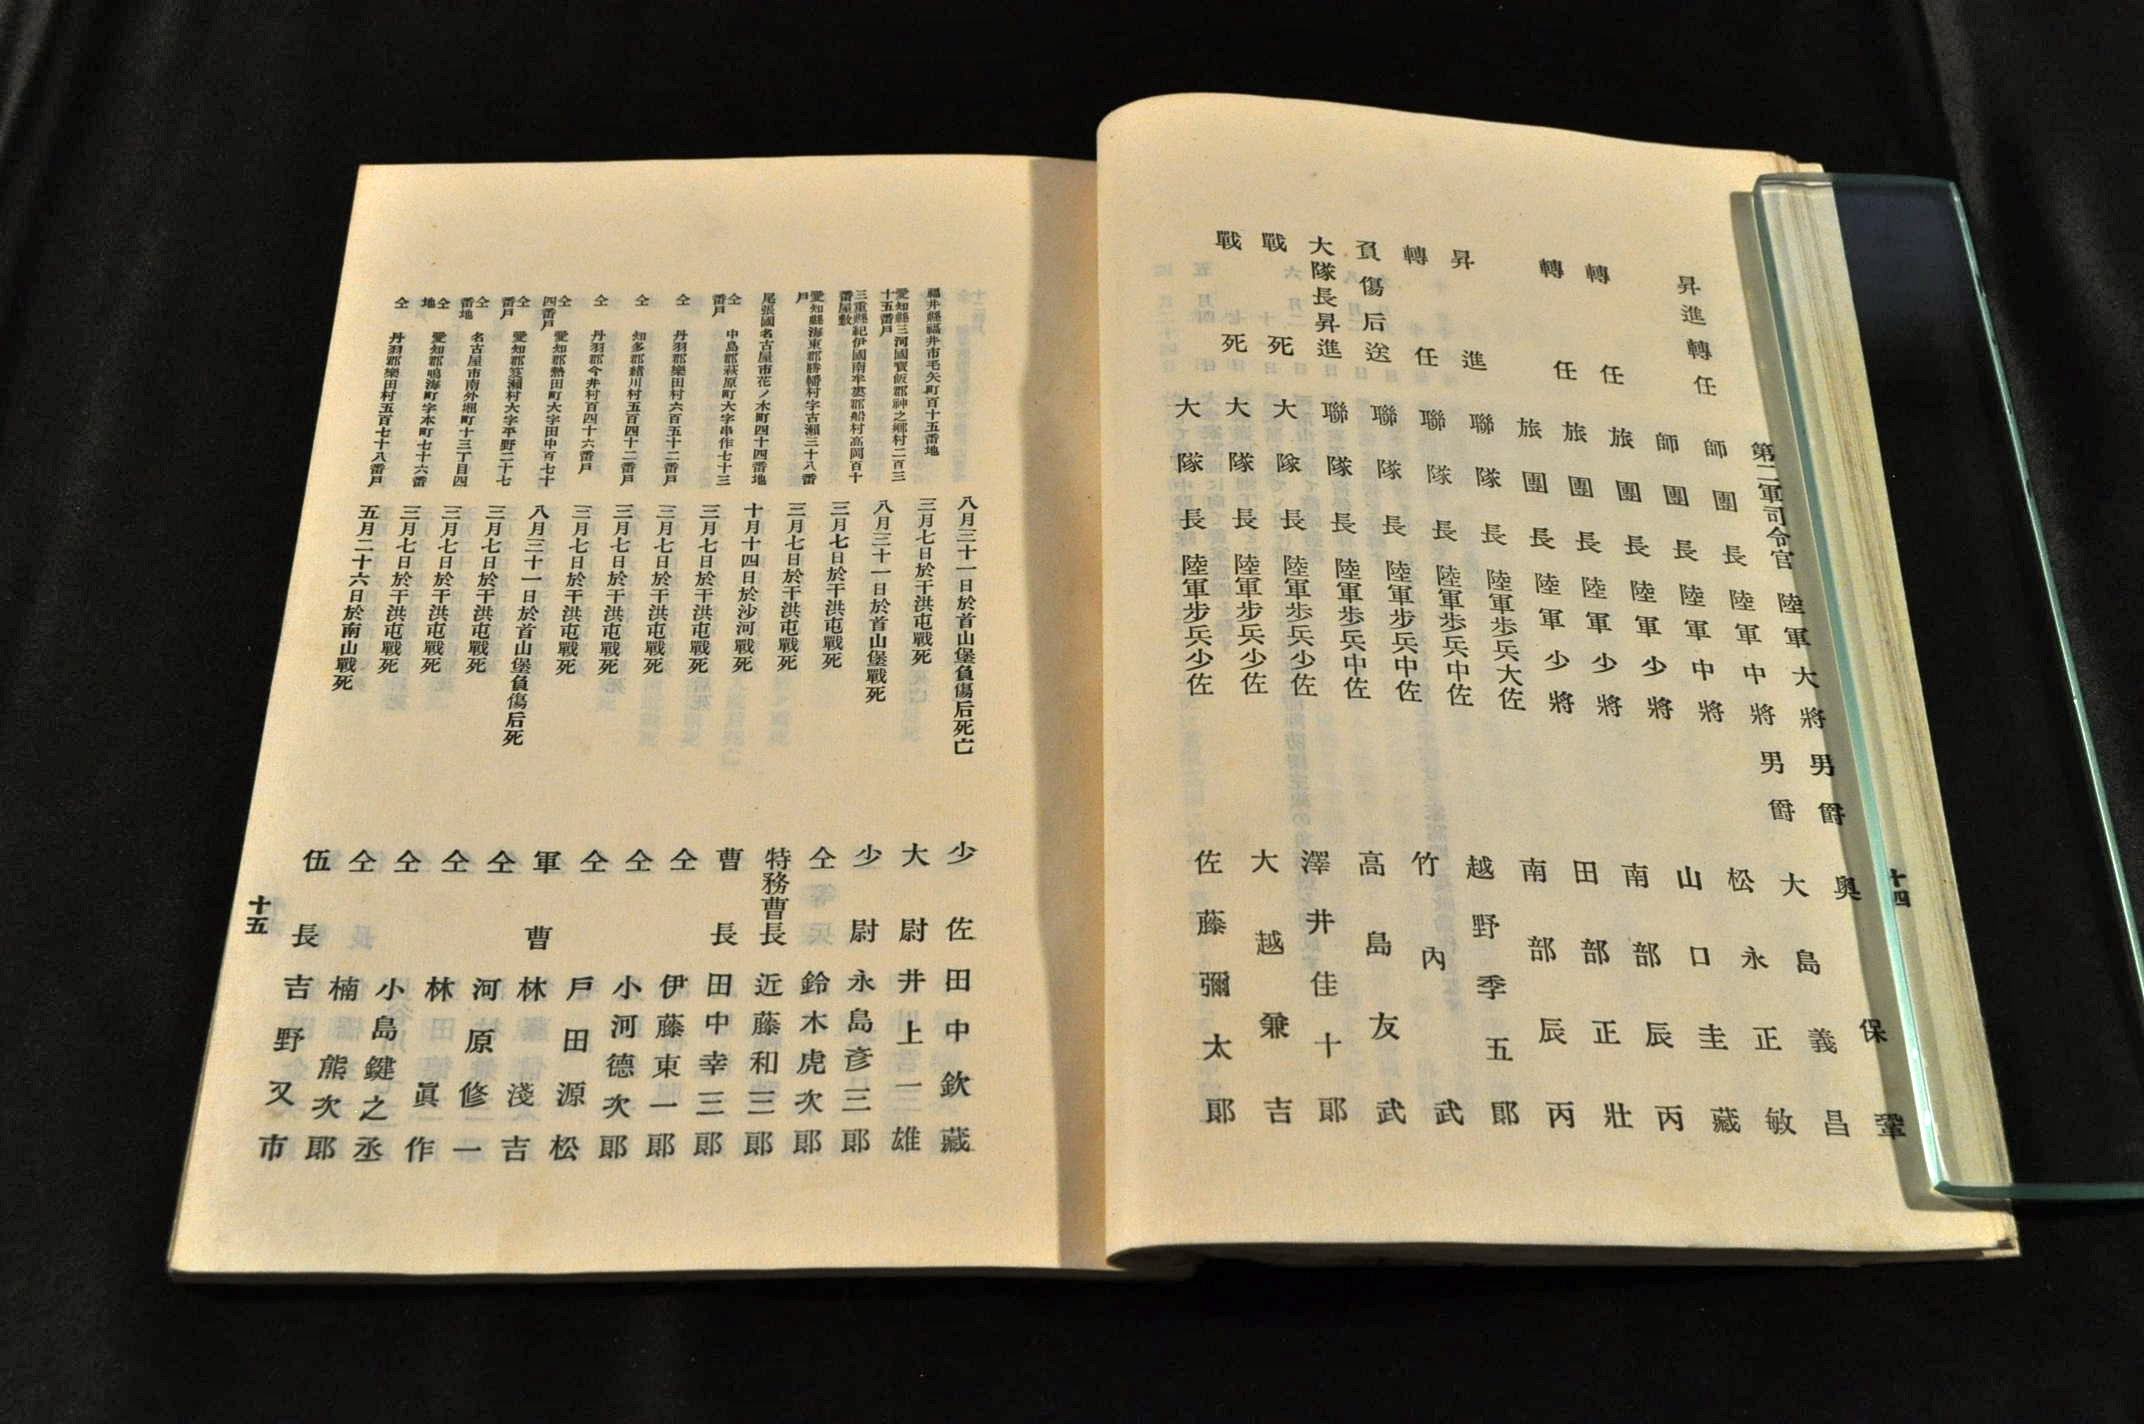 十四
第二軍司令官 陸軍大將 男爵 奧保鞏
昇進轉任 師團長 陸軍中將 男爵 大島義昌
師團長 陸軍中將 松永正敏
轉任 旅團長 陸軍少將 山口圭藏
轉任 旅團長 陸軍少將 南部辰丙
旅團長 陸軍少將 田部正壯
昇進 聯隊長 陸軍步兵大佐 南部辰丙
轉任 聯隊長 陸軍步兵中佐 越野季五郞
負傷后送 聯隊長 陸軍步兵中佐 竹內武
大隊長昇進 聯隊長 陸軍步兵中佐 高島友武
戰死 大隊長 陸軍步兵少佐 澤井佳十郞
戰死 大隊長 陸軍步兵少佐 大越兼吉
大隊長 陸軍步兵少佐 佐藤彌太郞
八月三十一日於首山堡負傷后死亡 少佐 田中欽藏
福井縣福井市毛矢町百十五番地 三月七日於干洪屯戰死 大尉 井上一雄
愛知縣三河國寶飯郡神之鄕村二百三十五番戶 八月三十一日於首山堡戰死 少尉 永島彥三郞
三重縣紀伊國南牟婁郡船村高岡百十番屋敷 三月七日於干洪屯戰死 仝 鈴木虎次郞
愛知縣海東郡勝幡村字古瀨三十八番戶 三月七日於干洪屯戰死 特務曹長 近藤和三郞
尾張國名古屋市花ノ木町四十四番地 十月十四日於沙河戰死 曹長 田中幸三郞
仝 中島郡萩原町大字串作七十三番戶 三月七日於干洪屯戰死 仝 伊藤東一郞
仝 丹羽郡樂田村六百五十二番戶 三月七日於干洪屯戰死 仝 小河德次郞
仝 知多郡緖川村五百四十二番戶 三月七日於干洪屯戰死 仝 戶田源松
仝 丹羽郡今井村百四十六番戶 三月七日於干洪屯戰死 軍曹 林淺吉
仝 愛知郡熱田町大字田中百七十四番戶 八月三十一日於首山堡負傷后死 仝 河原修一
仝 愛知郡笈瀨村大字平野二十七番戶 三月七日於干洪屯戰死 仝 林眞作
仝 名古屋市南外堀町十三丁目四番地 三月七日於干洪屯戰死 仝 小島鍵之丞
仝 愛知郡鳴海町字本町七十六番地 三月七日於干洪屯戰死 仝 楠熊次郞
仝 丹羽郡樂田村五百七十八番戶 五月二十六日於南山戰死 伍長 吉野又市
十五